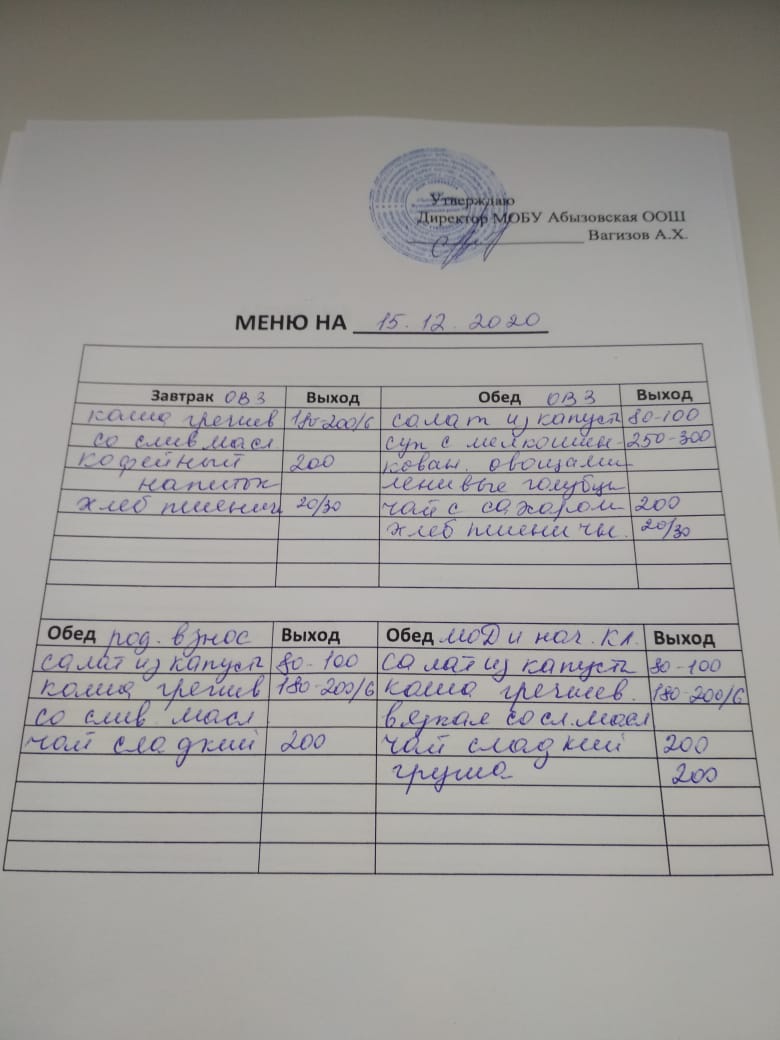 Утверждаю
Директор МОБУ Абызовская ООШ
Вагизов А.Х.
МЕНЮ НА 15.12.2020
Завтрак ОВЗ Выход Обед ОВЗ Выход
каша гречнев 180-200/6 салат из капусты 80-100
со слив масл суп с мелкошин- 250-300
кофейный 200 кован. овощами
напиток ленивые голубцы
хлеб пшенич 20/30 чай с сахаром 200
хлеб пшеничн. 20/30
Обед род. взнос Выход Обед МОД и нач. кл. Выход
салат из капусты 80-100 салат из капусты 80-100
каша гречнев 180-200/6 каша гречнев. 180-200/6
со слив. масл вязкая со сл. масл
чай сладкий 200 чай сладкий 200
груша 200